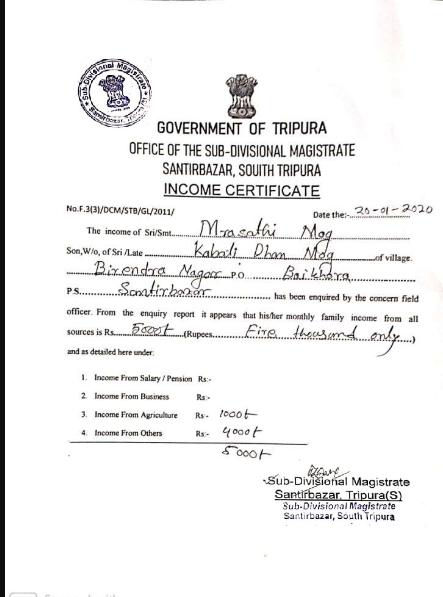 Sub-Divisional Magistrate
Santirbazar, Tripura(S)
GOVERNMENT OF TRIPURA
OFFICE OF THE SUB-DIVISIONAL MAGISTRATE
SANTIRBAZAR, SOUITH TRIPURA
INCOME CERTIFICATE
No.F.3(3)/DCM/STB/GL/2011/ Date the:- 20-01-2020
The income of Sri/Smt. Mrasathi Mog
Son,W/o, of Sri /Late Kabali Dhan Mog of village.
Birendra Nagar P.O Baikhora
P.S. Santirbazar has been enquired by the concern field
officer. From the enquiry report it appears that his/her monthly family income from all
sources is Rs. 5000/- (Rupees Five thousand only )
and as detailed here under:
1. Income From Salary / Pension Rs:-
2. Income From Business Rs:-
3. Income From Agriculture Rs:- 1000/-
4. Income From Others Rs:- 4000/-
5000/-
Sub-Divisional Magistrate
Santirbazar, Tripura(S)
Sub-Divisional Magistrate
Santirbazar, South Tripura